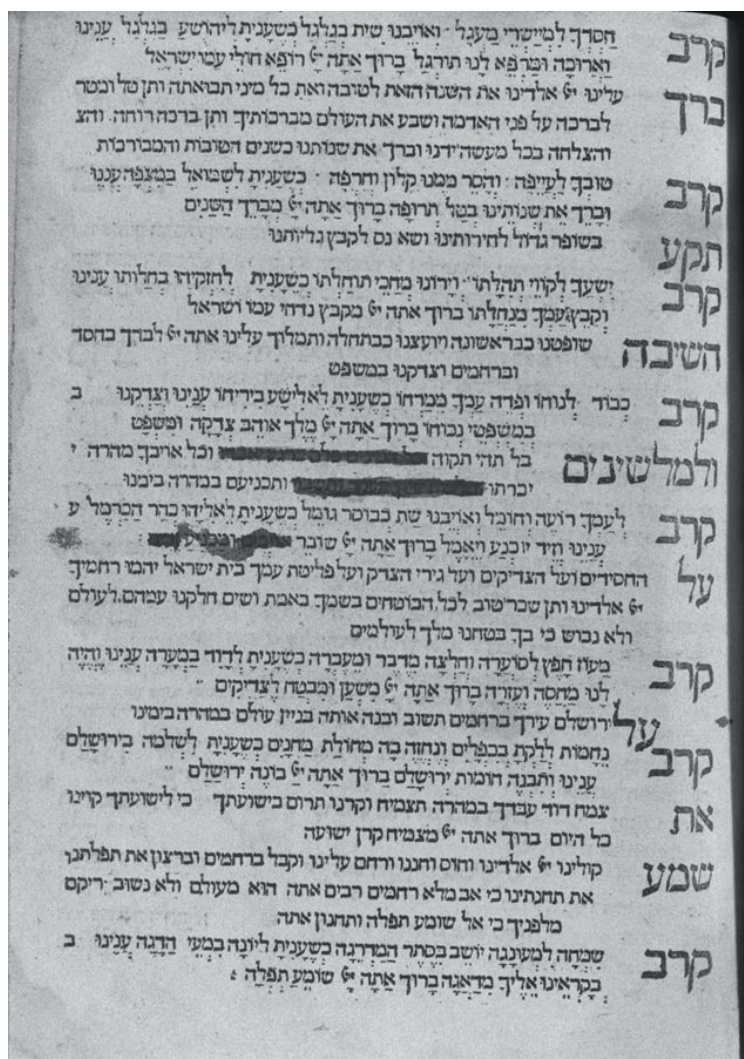 קרב חַסְדְּךָ לְמְיַשְׁרֵי מַעְגָּל וְאוֹיְבֵנוּ שִׁית כְגַלְגַל כְּשֶׁעָנִיתָ לִיהוֹשֻׁעַ בַּגִלְגָל עֲנֵינוּ
וַאֲרוּכָה וּמַרְפֵּא לָנוּ תוּרְגַל בָּרוּךְ אַתָּה יְיָ רוֹפֵא חוֹלֵי עַמּוֹ יִשְׂרָאֵל
ברך עלינו יי אלהינו את השנה הזאת לטובה ואת כל מיני תבואתה ותן טל ומטר
לברכה על פני האדמה ושבע את העולם מברכותיך ותן ברכה רוחה והצ
והצלחה בכל מעשה ידנו וברך את שנותנו כשנים הטובות והמבורכות
קרב טוּבְךָ לַעֲיֵיפָה וְהָסֵר מִמֶּנּוּ קָלוֹן וְחֶרְפָּה כְּשֶׁעָנִיתָ לִשְׁמוּאֵל בַּמִּצְפָּה עֲנֵנוּ
וּבָרֵךְ אֶת שְׁנוֹתֵינוּ בְּטַל תְּרוּפָה בָּרוּךְ אַתָּה יְיָ מְבָרֵךְ הַשָּׁנִים
תקע בשופר גדול לחירותינו ושא נס לקבץ גליותנו
קרב יִשְׁעֲךָ לְקוֹוֵי תְהִלָּתוֹ וִירוֹנוּ מְחַכֵּי תוֹחַלְתּוֹ כְּשֶׁעָנִיתָ לְחִזְקִיָהוּ בַּחֲלוֹתוֹ עֲנֵינוּ
וְקַבֵּץ עַמְּךָ מִנַּחֲלָתוֹ ברוך אתה יי מקבץ נדחי עמו ישראל
השיבה שופטנו כבראשונה ויועצנו כבתחלה ותמלוך עלינו אתה יי לבדך בחסד
וברחמים וצדקנו במשפט
קרב כָּבוֹד לְנוּחוֹ וּפְדֵה עַמְּךָ מִמִּרְחוֹ כְּשֶׁעָנִיתָ לֶאֱלִישָׁע בִּירִיחוֹ עֲנֵינוּ וְצַדְּקֵנוּ ב
בְּמִשְׁפְּטֵי נְכוֹחוֹ בָּרוּךְ אַתָּה יְיָ מֶלֶךְ אוֹהֵב צְדָקָה וּמִשְׁפָּט
ולמלשינים בל תהי תקוה וכל אויבך מהרה י
יכרתו ותכניעם במהרה בימנו
קרב לְעַמְּךָ רוֹעֶה וְחוֹמֵל וְאוֹיְבֵנוּ שִׁת כְּבוֹסֶר גּוֹמֵל כְּשֶׁעָנִיתָ לְאֵלִיָּהוּ בְּהַר הַכַּרְמֶל ע
עֲנֵינוּ וְזֵד יוּכְנַע וְיֵאָמֵל בָּרוּךְ אַתָּה יְיָ שׁוֹבֵר
על החסידים ועל הצדיקים ועל גירי הצדק ועל פליטת עמך בית ישראל יהמו רחמיך
יי אלהינו ותן שכר טוב לכל הבוטחים בשמך באמת ושים חלקנו עמהם לעולם
ולא נבוש כי בך בטחנו מלך לעולמים
קרב מָעוֹז חָפֵץ לְסוֹעֲרָה וְחַלְצָהּ מִדֶּבֶר וּמֵעֶבְרָה כְּשֶׁעָנִיתָ לְדָוִד בַּמְּעָרָה עֲנֵינוּ וֶהְיֵה
לָנוּ מַחֲסֶה וְעֶזְרָה בָּרוּךְ אַתָּה יְיָ מִשְׁעָן וּמִבְטָח לַצַּדִּיקִים
על ירושלם עירך ברחמים תשוב ובנה אותה בניין עולם במהרה בימינו
קרב נֶחָמוֹת לְלֻקְתָּ בְּכִפְלַיִם וְנֶחֱזֶה בָהּ מְחוֹלַת מַחֲנַיִם כְּשֶׁעָנִיתָ לִשְׁלֹמֹה בִּירוּשָׁלַם
עֲנֵינוּ וְתִבְנֶה חוֹמוֹת יְרוּשָׁלַם בָּרוּךְ אַתָּה יְיָ בּוֹנֵה יְרוּשָׁלַם
את צמח דוד עבדך במהרה תצמיח וקרנו תרום בישועתך כי לישועתך קוינו
כל היום ברוך אתה יי מצמיח קרן ישועה
שמע קולינו יי אלהינו וחוס וחננו ורחם עלינו וקבל ברחמים וברצון את תפלתנו
את תחנתינו כי אב מלא רחמים רבים אתה הוא מעולם ולא נשוב ריקם
מלפניך כי אל שומע תפלה ותחנון אתה
קרב שִׂמְחָה לִמְעוּנָּגָה יוֹשֵׁב בְּסֵתֶר הַמַּדְרֵגָה כְּשֶׁעָנִיתָ לְיוֹנָה בִּמְעֵי הַדָּגָה עֲנֵינוּ ב
בְּקָרְאֵינוּ אֵלֶיךָ מִדְּאָגָה בָּרוּךְ אַתָּה יְיָ שׁוֹמֵעַ תְּפִלָּה